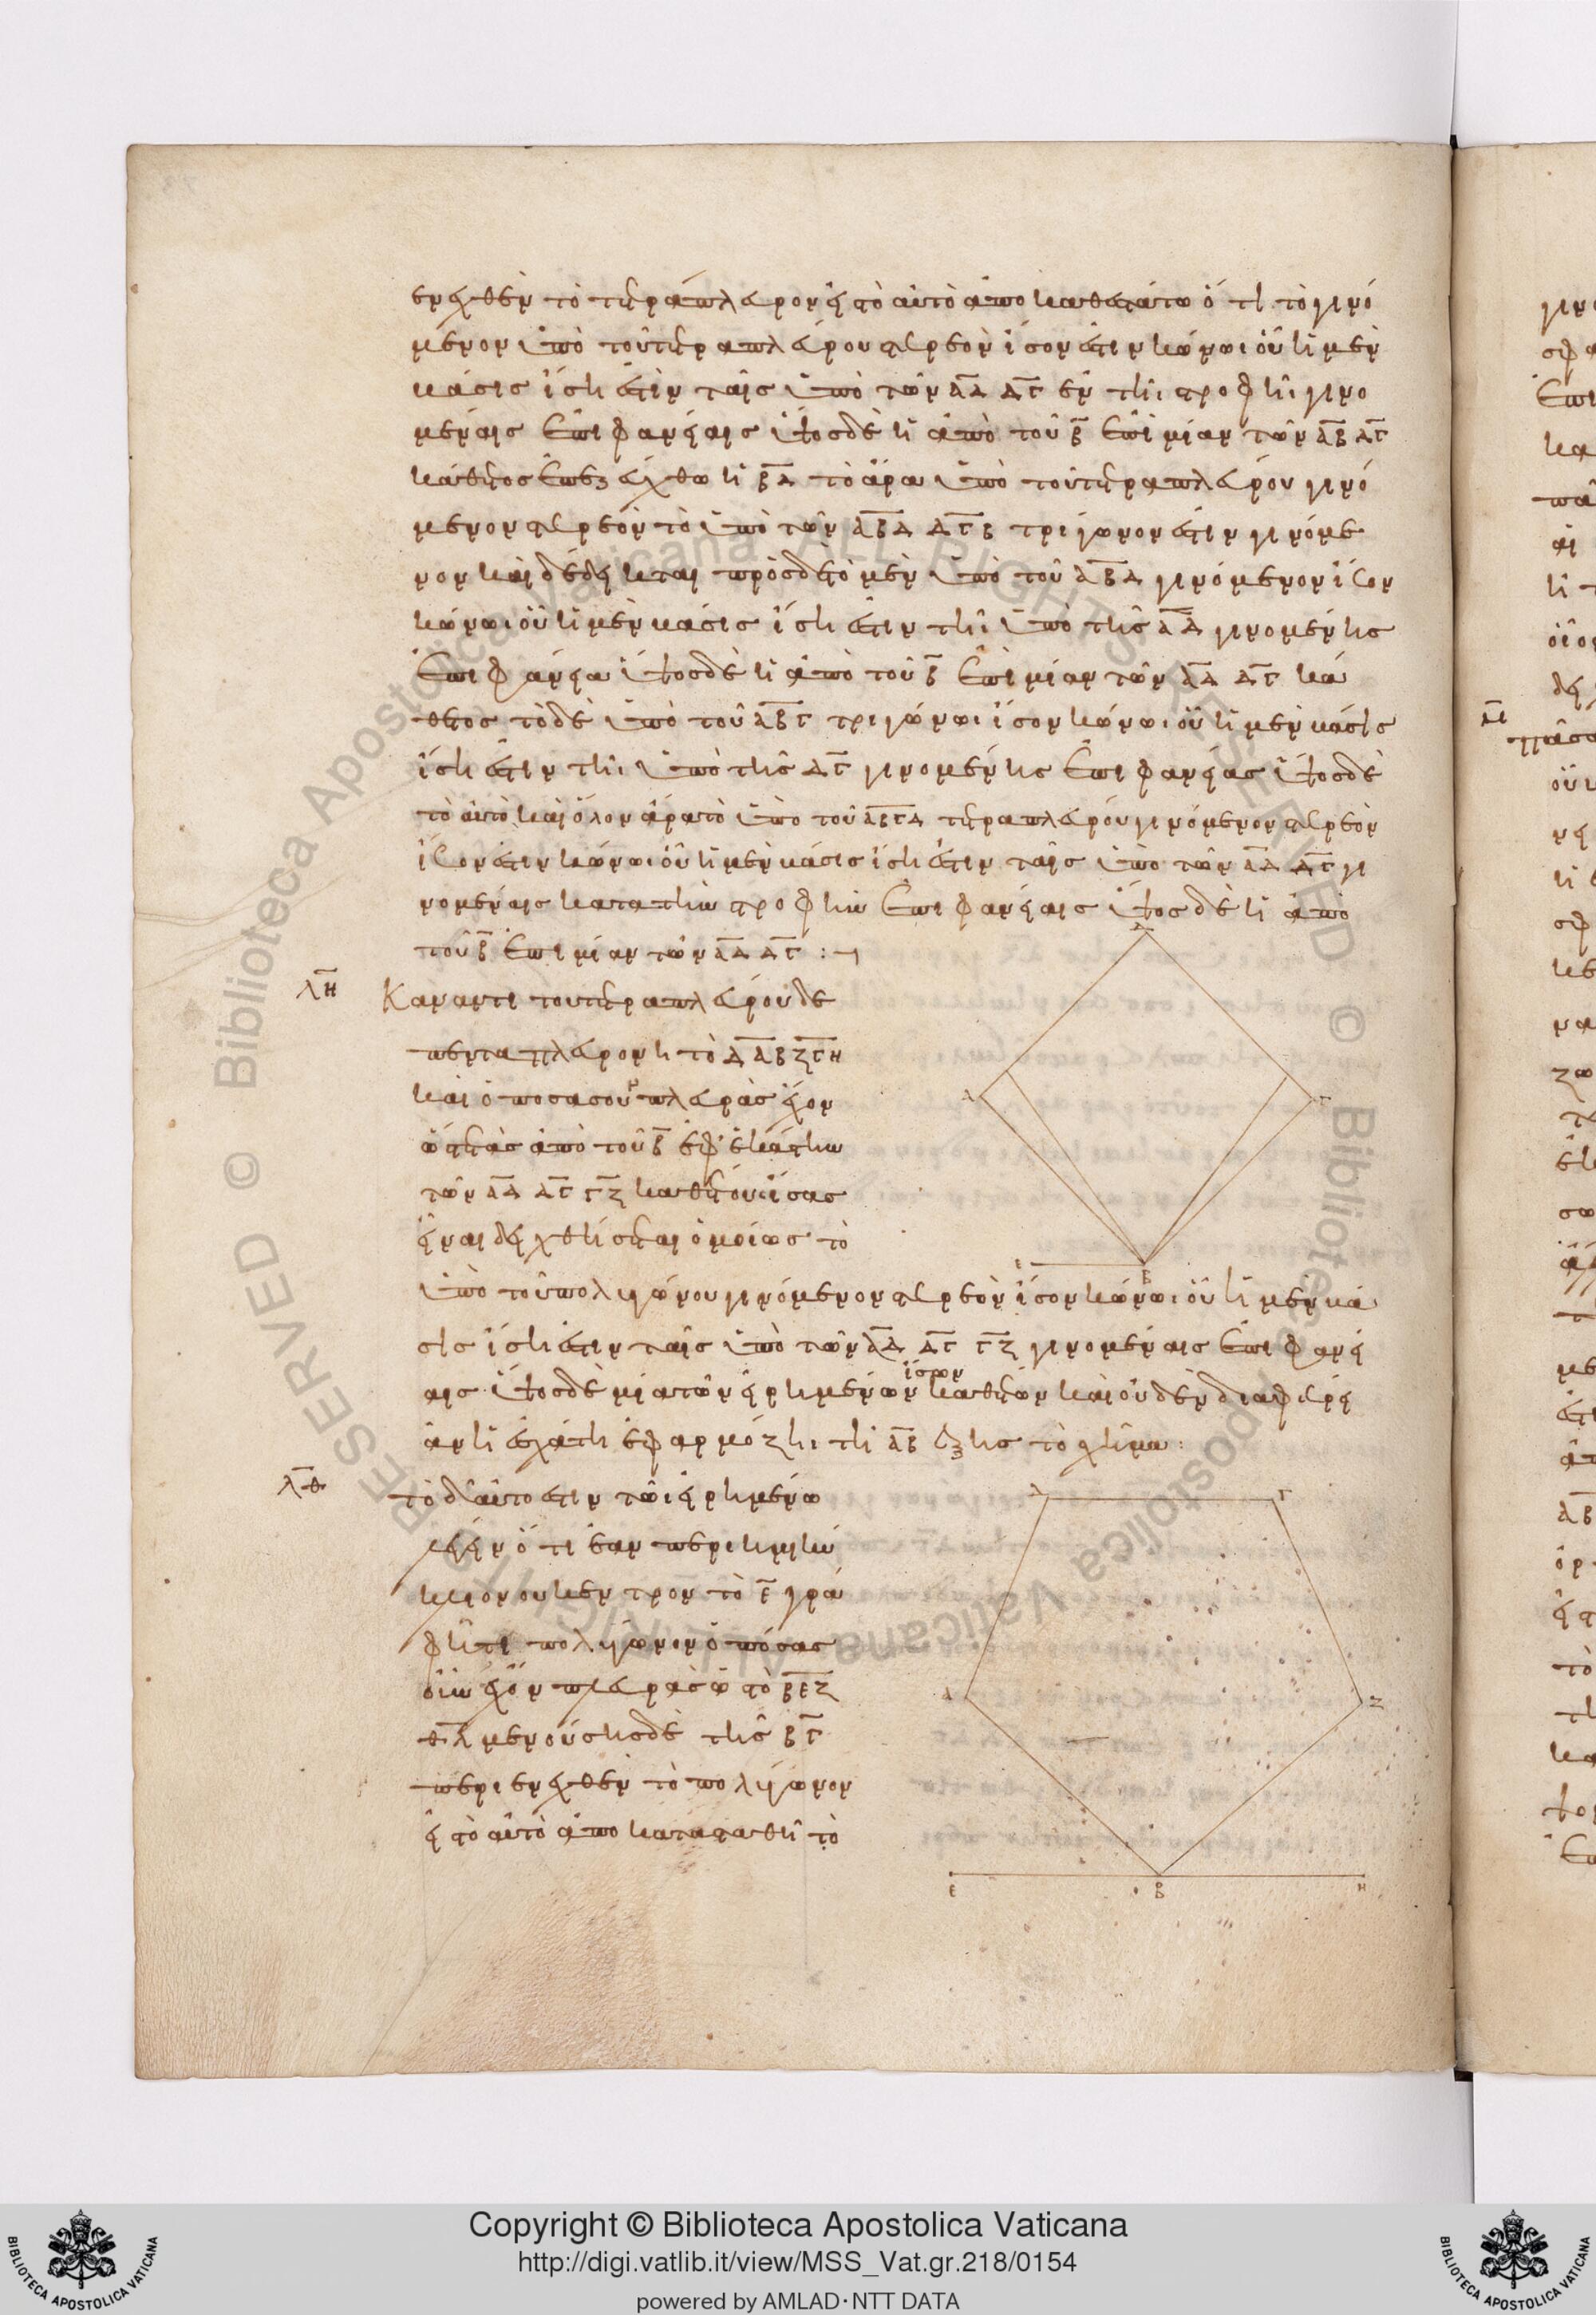 ενεχθὲν τὸ τετράπλευρον εἰς τὸ αὐτὸ ἀποκαθεστάτω ὅτι τὸ γινό
μενον ὑπὸ τοῦ τετραπλεύρου στερεὸν ἴσον ἐστιν κώνωι οὗ ἡ μὲν
βάσις ἴση ἐστὶν ταῖς ὑπὸ τῶν ΑΔ ΔΓ ἐν τῆι στροφῆι γινο
μέναις ἐπιφανείαις ὕψος δὲ ἡ ἀπὸ τοῦ Β ἐπὶ μίαν τῶν ΑΒ ΔΓ
κάθετος ἐπεζεύχθω ἡ ΒΔ τὸ ἄρα ὑπὸ τοῦ τετραπλεύρου γινό
μενον στερεὸν τὸ ὑπὸ τῶν ΑΒΔ ΔΓΒ τριγώνον ἐστιν γινόμε
νον καὶ δέδεικται πρὸς δὲ τὸ μὲν ὑπὸ τοῦ ΑΒΔ γινόμενον ἴσον
κώνωι οὗ ἡ μὲν βάσις ἴση ἐστιν τῆι ὑπὸ τῆς ΑΔ γινομένης
ἐπιφανεία ὕψος δὲ ἡ ἀπὸ τοῦ Β ἐπὶ μίαν τῶν ΑΔ ΔΓ κά
θετος τὸ δὲ ὑπὸ τοῦ ΑΒΓ τριγώνωι ἴσον κώνωι οὗ ἡ μὲν βάσις
ἴση ἐστιν τῆι ὑπὸ τῆς ΔΓ γινομένης ἐπιφανείας ὕψος δὲ
τὸ αὐτὸ καὶ ὅλον ἄρα τὸ ὑπὸ τοῦ ΑΒΓΔ τετραπλεύρου γινόμενον στερεὸν
ἴσον ἐστιν κώνωι οὗ ἡ μὲν βάσις ἴση ἐστιν ταῖς ὑπὸ τῶν ΑΔ ΔΓ γι
νομέναις κατα τὴν στροφὴν ἐπιφανείαις ὕψος δὲ ἡ ἀπὸ
τοῦ Β ἐπι μίαν τῶν ΑΔ ΔΓ :
ΛΗ Καν αντι του τετραπλεύρου δε
πενταπλευρον η τὸ ΔΑΒΖΓΗ
καὶ ὁποσασοῦν πλευρὰς ἔχον
ὥστε τὰς ἀπὸ τοῦ Β ἐφ' ἑκάστην
τῶν ΑΔ ΔΓ ΓΖ καθέτους ἴσας
εἶναι δειχθήσεται ὁμοίως τὸ
ὑπὸ τοῦ πολυγώνου γινόμενον στερεὸν ἴσον κώνωι οὗ ἡ μεν βά
σις ἴση ἐστιν ταῖς ὑπὸ τῶν ΑΔ ΔΓ ΓΖ γινομέναις ἐπιφανεί
αις ὕψος δὲ μία τῶν εἰρημένων ἴσων καθέτων καὶ οὐδὲν διαφέρει
ἂν ἡ ἐσχάτη ἐφαρμόζηι τῆ ΑΒ ἑξῆς τὸ σχῆμα :
ΛΘ τὸ δ' αὐτο ἐστιν τῶι εἰρημένω
εἰπεῖν ὅτι ἐαν περι ἡμικύ
κλιον ου κέντρον τὸ Ε γρα
φῆ τι πολύγωνον ὁπόσας
οὖν ἔχον πλευρὰς ὡς τὸ ΒΕΖ
ΘΛ μενούσης δὲ τῆς ΒΓ
περιενεχθὲν τὸ πολύγωνον
εἰς τὸ αὐτὸ ἀποκατασταθῆ τὸ
Δ
Α
Γ
Ε
Β
Δ
Γ
Α
Ζ
Ε
Β
Η
Copyright © Biblioteca Apostolica Vaticana
http://digi.vatlib.it/view/MSS_Vat.gr.218/0154
powered by AMLAD·NTT DATA
BIBLIOTECA APOSTOLICA VATICANA
BIBLIOTECA APOSTOLICA VATICANA
© Biblioteca Apostolica Vaticana ALL RIGHTS RESERVED © Biblioteca Apostolica Vaticana ALL RIGHTS RESERVED